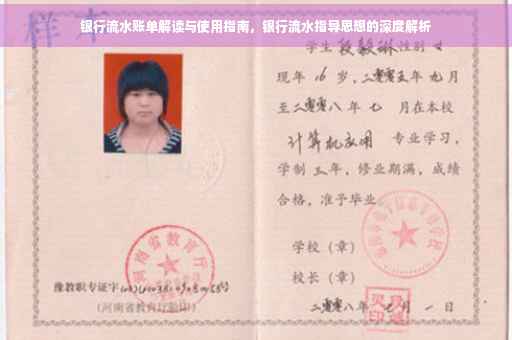 银行流水账单解读与使用指南，银行流水指导思想的深度解析
样本
学生 段毅琳 性别 女
现年 16 岁，二零零五年 九月
至二零零八年 七 月在本校
计算机应用 专业学习，
学制 三年，修业期满，成绩
合格，准予毕业
学校（章）
校长（章）
二零零八年 七 月 一 日
河南省教育厅
豫教职专证字
（河南省教育厅验印）